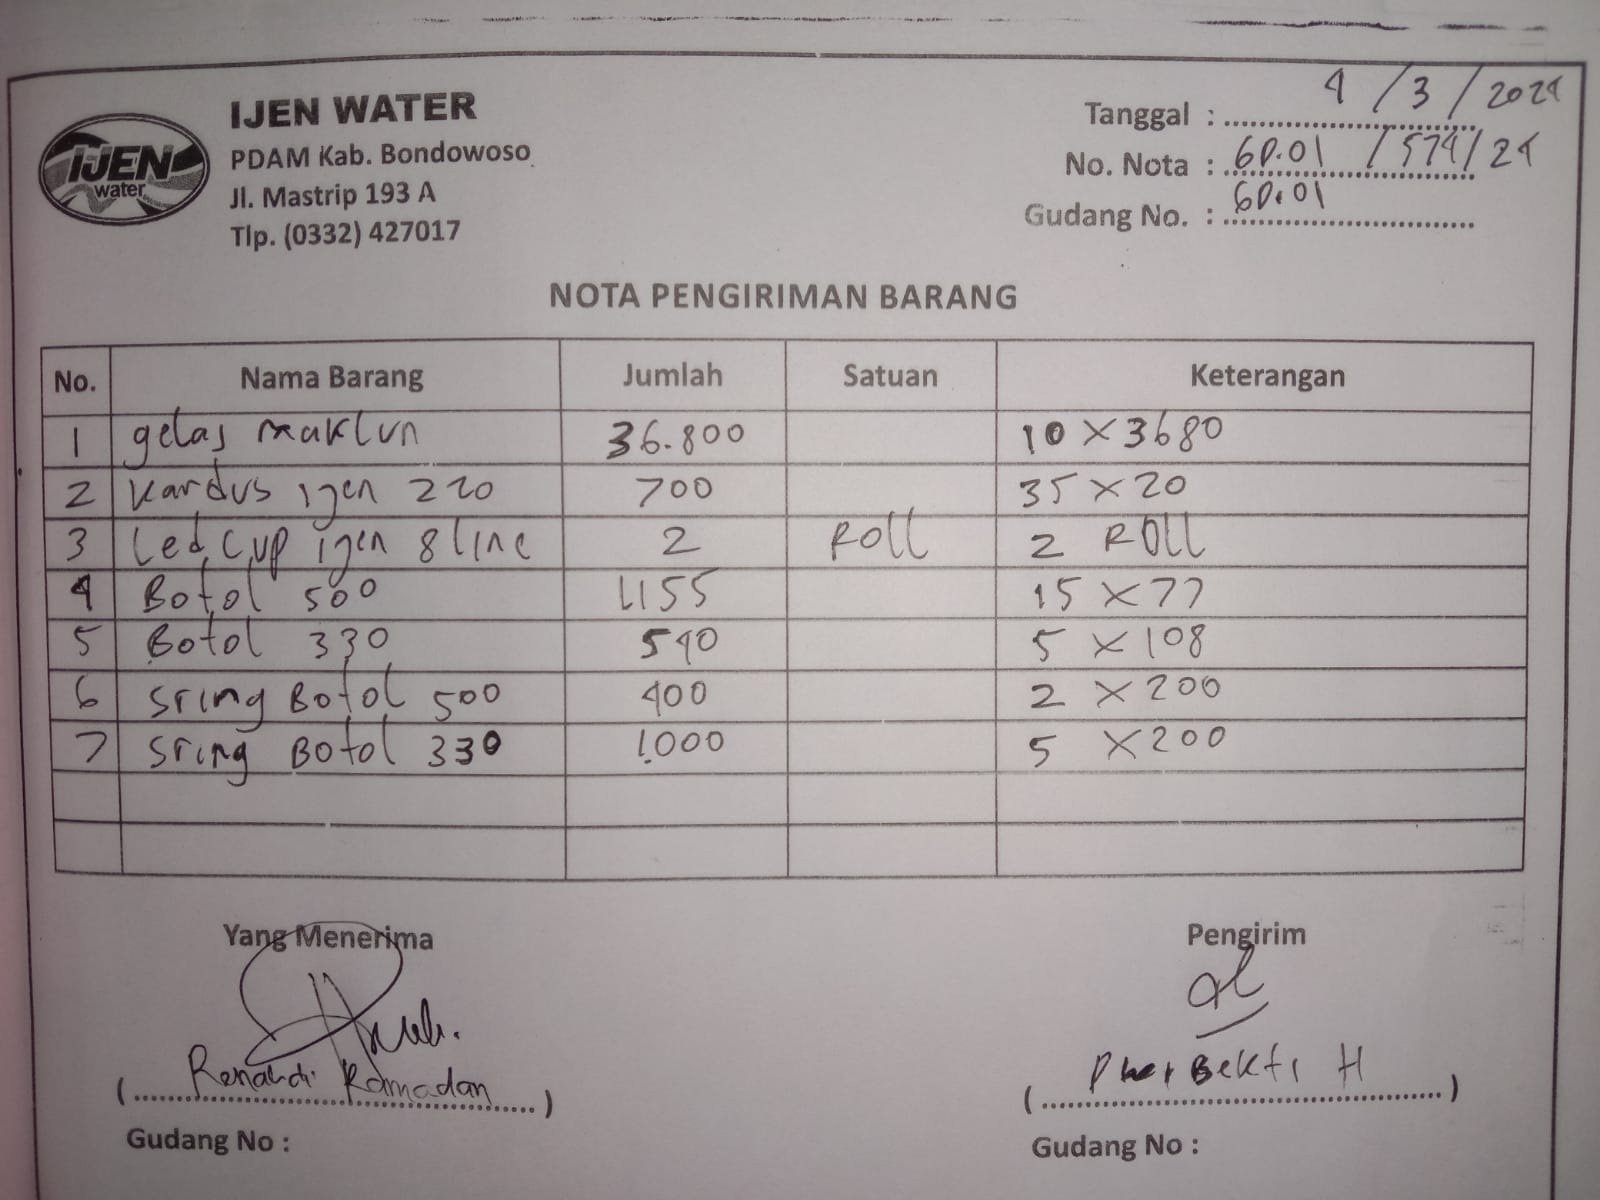 IJEN WATER
PDAM Kab. Bondowoso
Jl. Mastrip 193 A
Tlp. (0332) 427017
IJEN
water
Tanggal : 4 / 3 / 2024
No. Nota : GD.01 / 574 / 24
Gudang No. : GD.01
NOTA PENGIRIMAN BARANG
No. Nama Barang Jumlah Satuan Keterangan
1 gelas maklun 36.800 10 X 3680
2 Kardus ijen 220 700 35 X 20
3 Led Cup ijen 8 line 2 Roll 2 ROLL
4 Botol 500 1155 15 X 77
5 Botol 330 540 5 X 108
6 Sring Botol 500 400 2 X 200
7 Sring Botol 330 1.000 5 X 200
Yang Menerima Pengirim
( Renaldi Ramadan ) ( Bekti H )
Gudang No : Gudang No :